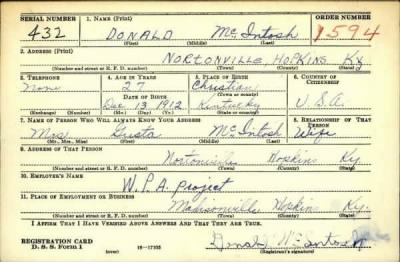 SERIAL NUMBER 1. NAME (Print) ORDER NUMBER
432 DONALD McIntosh 1594
(First) (Middle) (Last)
2. ADDRESS (Print)
NORTONVILLE, HOPKINS Ky
(Number and street or R. F. D. number) (Town) (County) (State)
3. TELEPHONE 4. AGE IN YEARS 5. PLACE OF BIRTH 6. COUNTRY OF CITIZENSHIP
None 27 Christian
(Town or county)
DATE OF BIRTH
Dec 13 1912 Kentucky U.S.A.
(Exchange) (Number) (Mo.) (Day) (Yr.) (State or country)
7. NAME OF PERSON WHO WILL ALWAYS KNOW YOUR ADDRESS 8. RELATIONSHIP OF THAT PERSON
Mrs Gusta McIntosh Wife
(Mr., Mrs., Miss) (First) (Middle) (Last)
9. ADDRESS OF THAT PERSON
Nortonville Hopkin Ky.
(Number and street or R. F. D. number) (Town) (County) (State)
10. EMPLOYER'S NAME
W.P.A. Project
11. PLACE OF EMPLOYMENT OR BUSINESS
Madisonville Hopkin Ky.
(Number and street or R. F. D. number) (Town) (County) (State)
I AFFIRM THAT I HAVE VERIFIED ABOVE ANSWERS AND THAT THEY ARE TRUE.
REGISTRATION CARD
D. S. S. Form 1 (over) 16—17105 Donald McIntosh
(Registrant's signature)